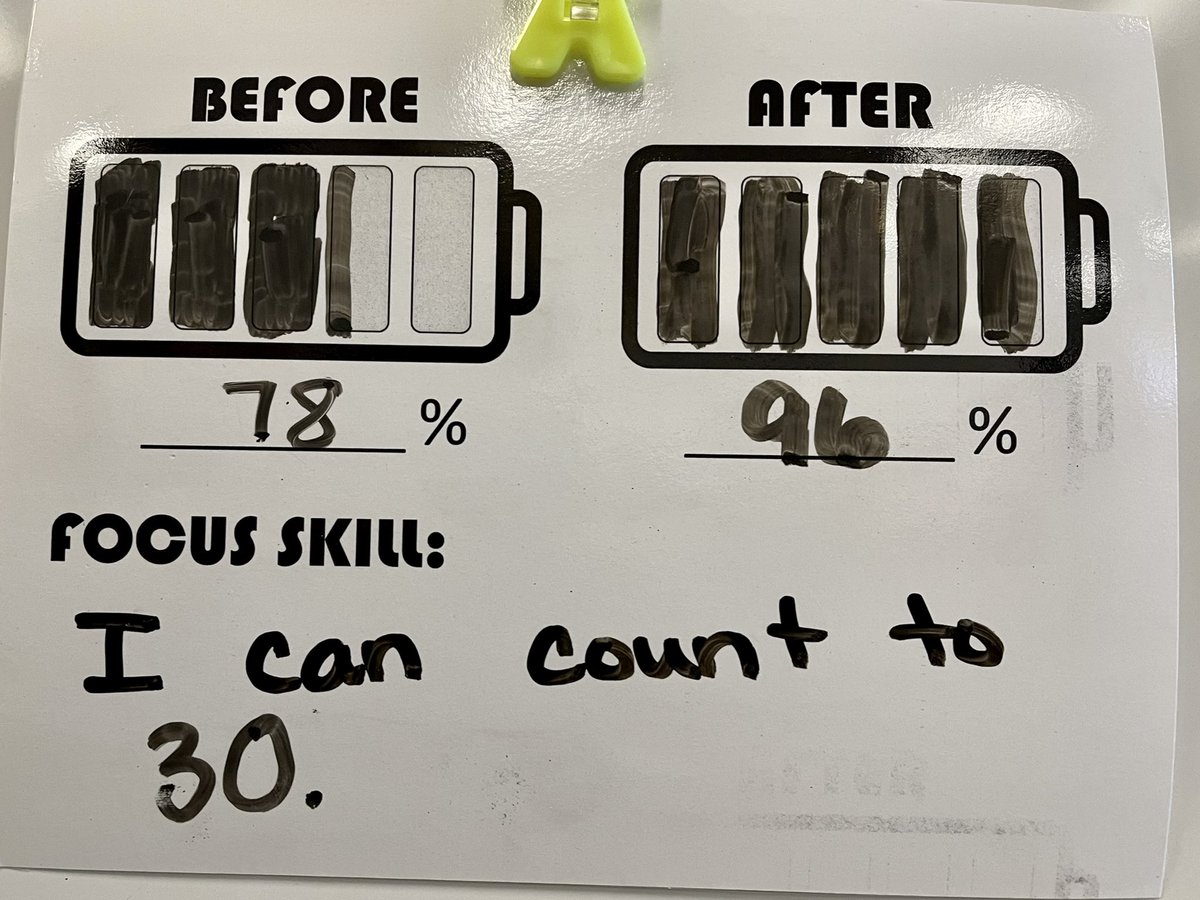 BEFORE
AFTER
78 %
96 %
FOCUS SKILL:
I can count to
30.